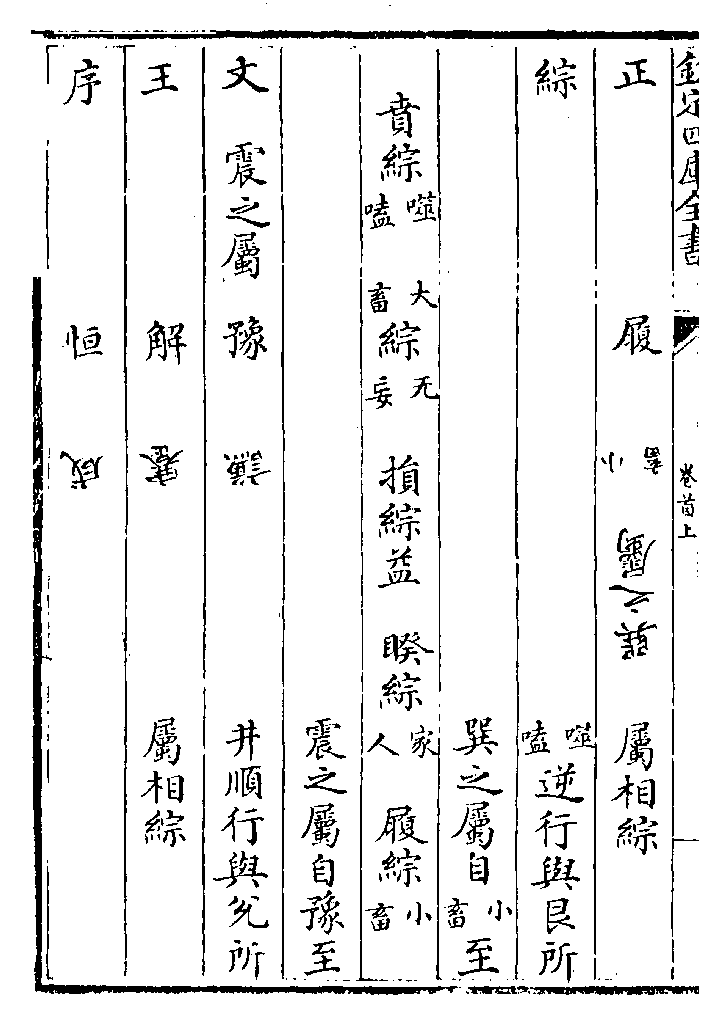 欽定四庫全書
卷首上
正　履　小畜　巽之屬　屬相綜
綜　噬嗑逆行與艮所
巽之屬自小畜至
賁綜噬嗑　大畜綜无妄　損綜益　睽綜家人　履綜小畜
震之屬自豫至
文　震之屬　豫　謙　井順行與兊所
王　解　蹇　屬相綜
序　恒　咸